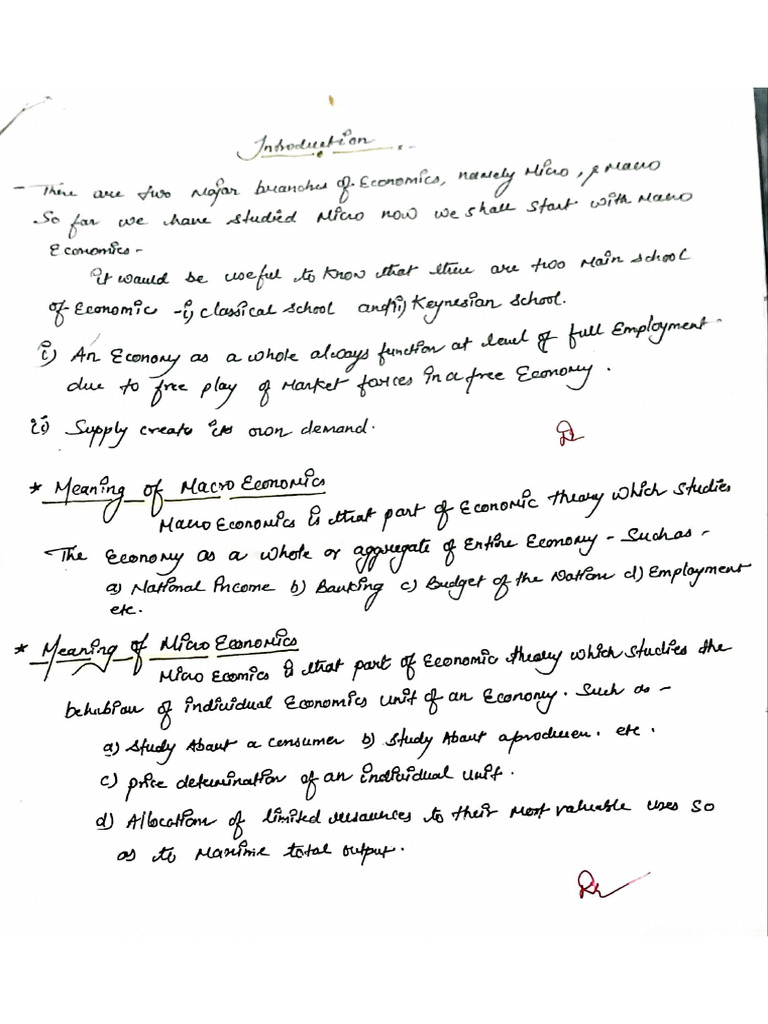 Introduction
- There are two Major branches of Economics, namely Micro, & Macro
So far we have studied Micro now we shall start with Macro
Economics -
it would be useful to know that there are two Main school
of Economic - i) Classical School and ii) Keynesian School.
i) An Economy as a whole always function at level of full Employment -
due to free play of Market forces in a free Economy.
ii) Supply create its own demand.
* Meaning of Macro Economics
Macro Economics is that part of Economic theory which studies
The Economy as a whole or aggregate of Entire Economy - Such as -
a) National Income b) Banking c) Budget of the Nation d) Employment
etc.
* Meaning of Micro Economics
Micro Ecomics is that part of Economic theory which studies the
behabiour of individual Economics unit of an Economy. Such as -
a) Study About a consumer b) Study About a producer. etc.
c) price determination of an individual unit.
d) Allocation of limited resources to their most valuable uses so
as to Maximie total output.